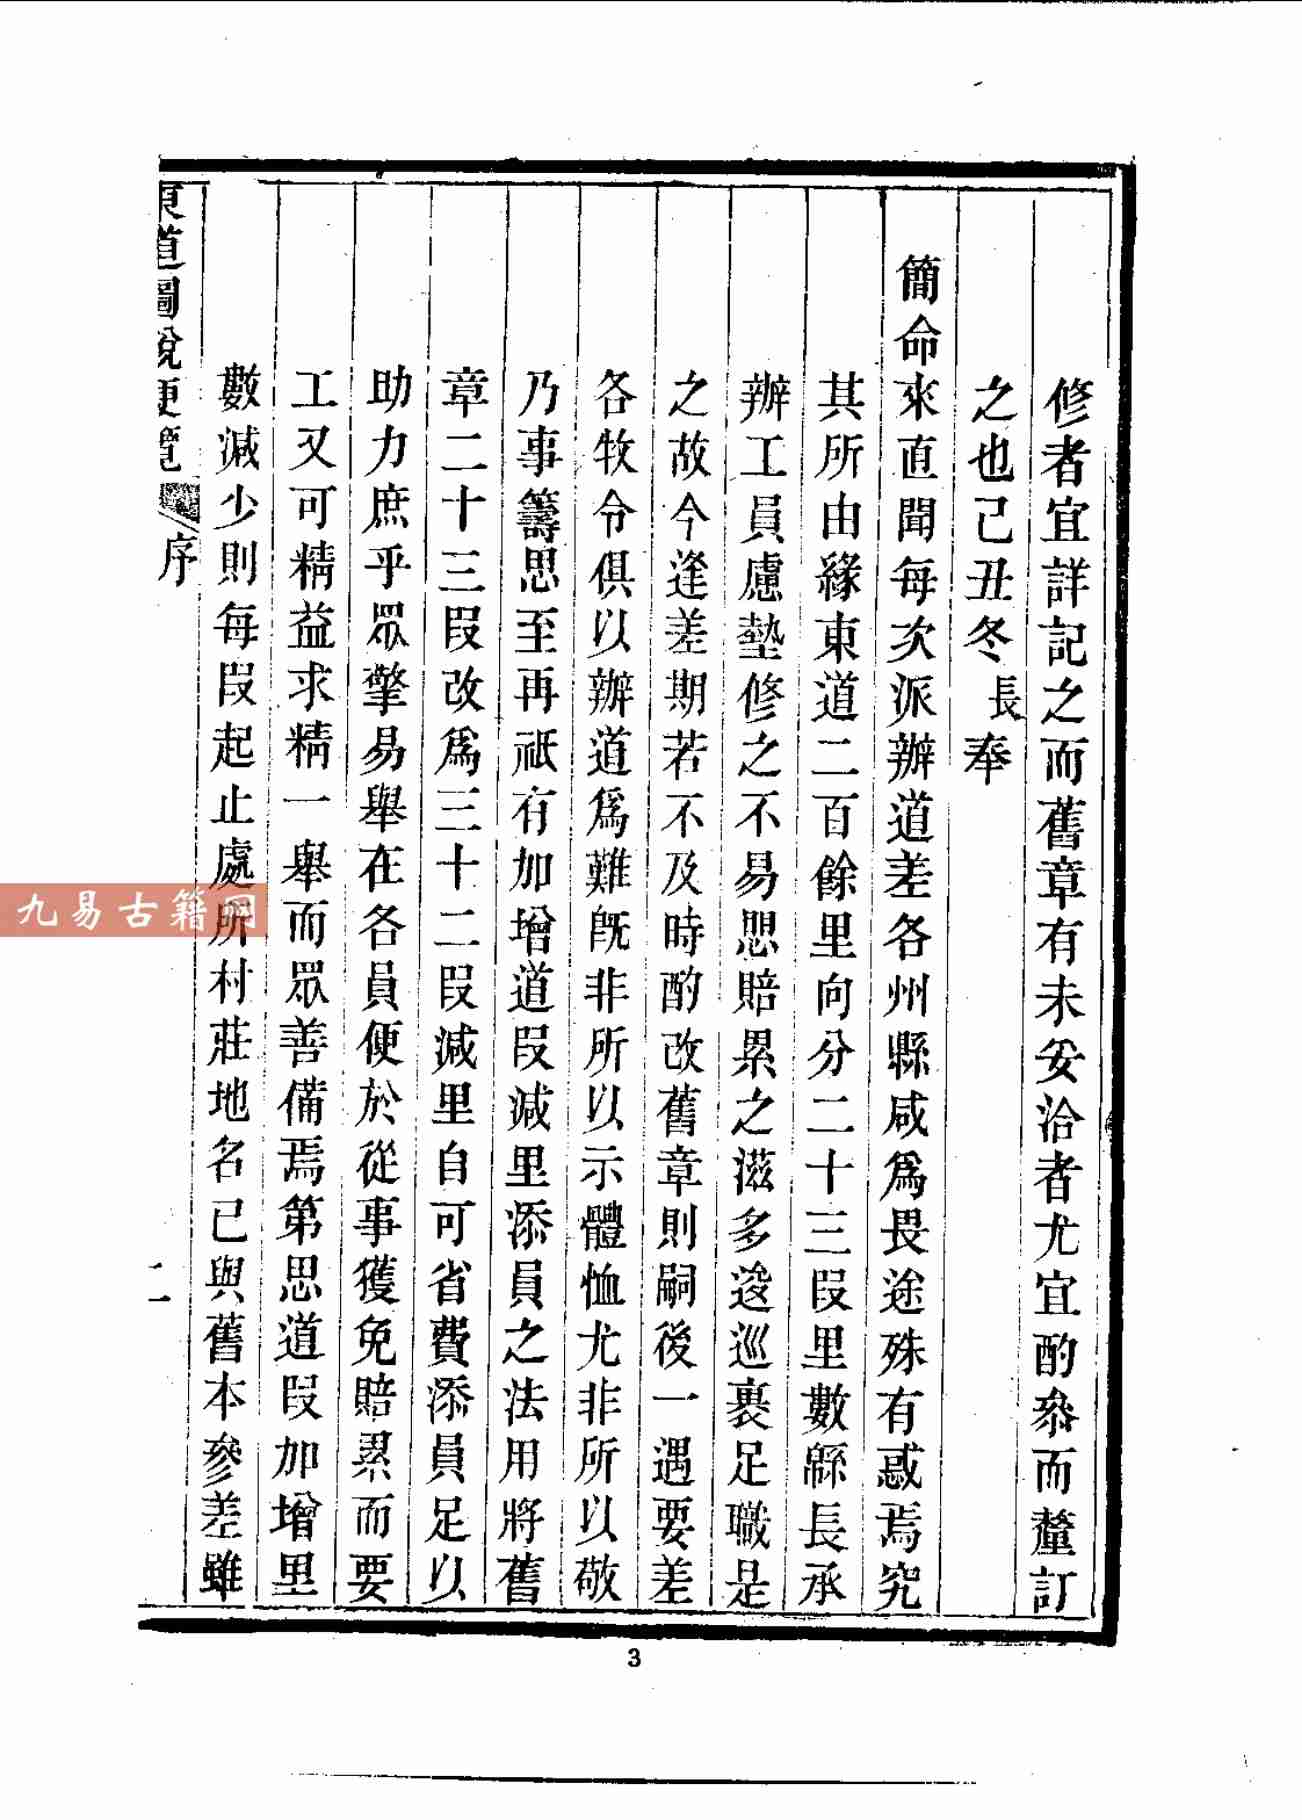 修者宜詳記之而舊章有未妥洽者尤宜酌叅而釐訂
之也己丑冬長奉
簡命來直聞每次派辦道差各州縣咸爲畏途殊有惑焉究
其所由緣東道二百餘里向分二十三段里數緜長承
辦工員慮墊修之不易思賠累之滋多逡巡裹足職是
之故今逢差期若不及時酌改舊章則嗣後一遇要差
各牧令俱以辦道爲難旣非所以示體恤尤非所以敬
乃事籌思至再祇有加增道段減里添員之法用將舊
章二十三段改爲三十二段減里自可省費添員足以
助力庶乎眾擎易舉在各員便於從事獲免賠累而要
工又可精益求精一舉而眾善備焉第思道段加增里
數減少則每段起止處所村莊地名已與舊本參差雖
東道圖說便覽
序
二
3
九易古籍网